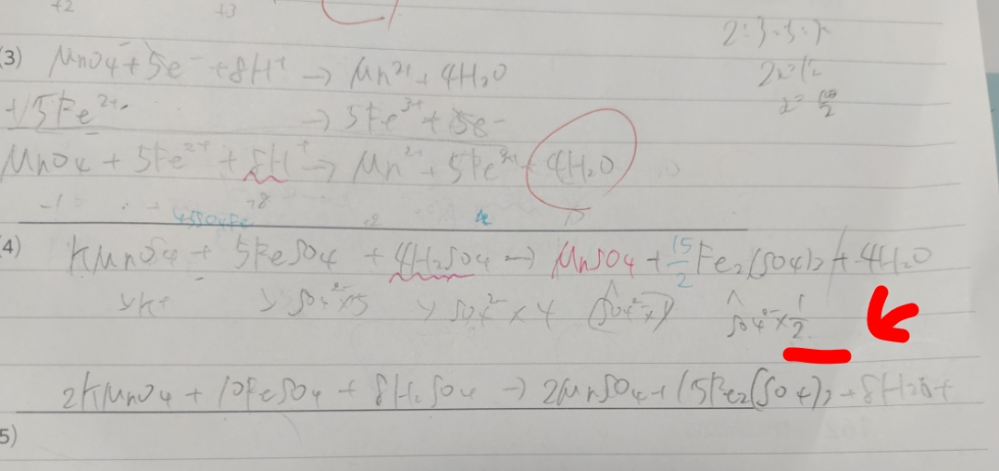 +2 +3
2:3=5:x
2x=15
x=15/2
(3) MnO4⁻+5e⁻+8H⁺→Mn²⁺+4H2O
+)5Fe²⁺ →5Fe³⁺+5e⁻
MnO4⁻+5Fe²⁺+8H⁺→Mn²⁺+5Fe³⁺+4H2O
(4) KMnO4+5FeSO4+4H2SO4→MnSO4+15/2Fe2(SO4)3+4H2O
K⁺ SO4²⁻×5 SO4²⁻×4 (SO4²⁻×1) SO4²⁻×1/2
2KMnO4+10FeSO4+8H2SO4→2MnSO4+15Fe2(SO4)3+8H2O+
5)